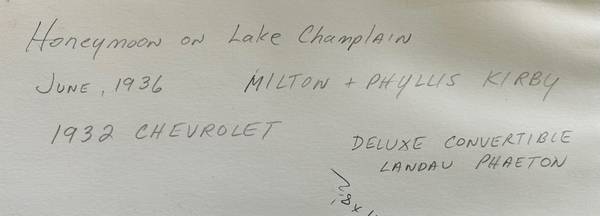 Honeymoon on Lake Champlain
June, 1936 Milton + Phyllis Kirby
1932 Chevrolet
Deluxe Convertible
Landau Phaeton